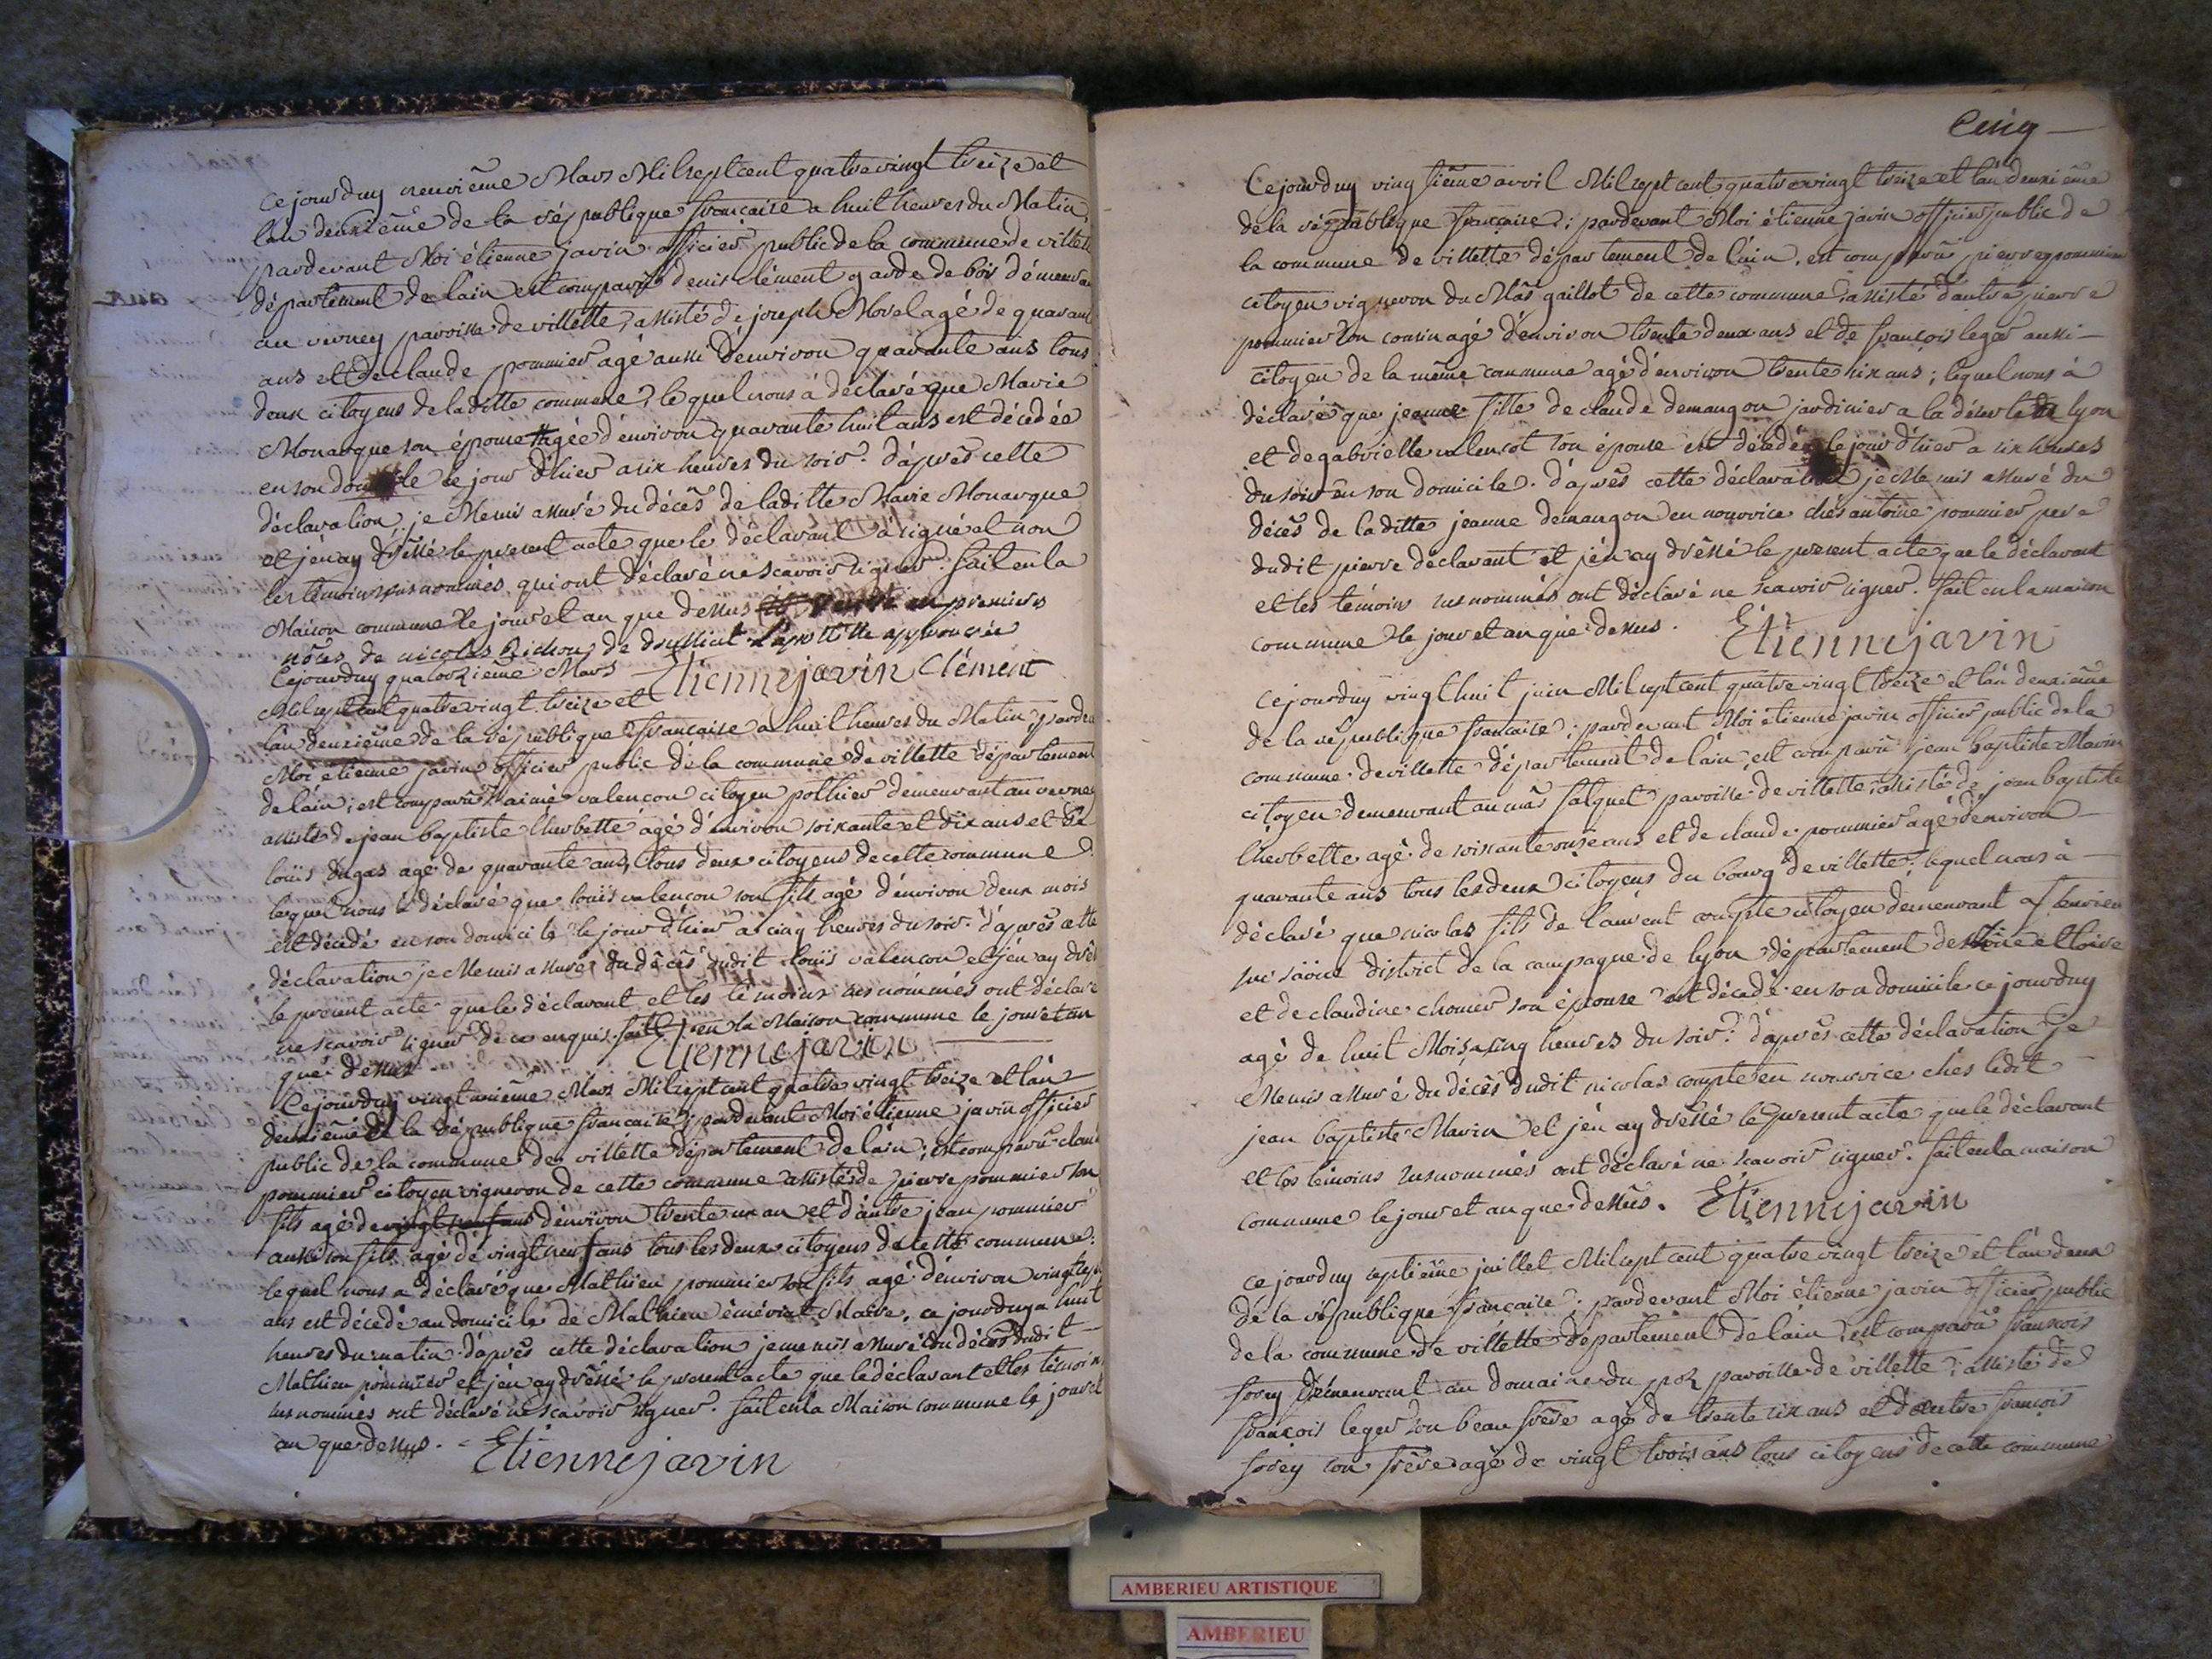 Ce jourduy neuvième Mars Mil sept cent quatre vingt treize et
l'an deuxième de la république française a huit heures du Matin
pardevant Moi étienne javin officier public de la commune de villette
département de láin est comparu denis clément garde de bois démeurant
au verney paroisse de villette, assisté de joseph Morel agé de quarante
ans et de claude pommier agé aussi d'environ quarante ans tous
deux citoyens de laditte commune, le quel nous à déclaré que Marie
Monarque son épouse agée d'environ quarante huit ans est décédée
en son domicile le jour d'hier a six heures du soir. d'après cette
déclaration je Me suis assuré du décès de laditte Marie Monarque
et jén ay dréssé le present acte que le déclarant à signé et non
les témoins susnommés qui ont déclaré ne scavoir signer. fait en la
Maison commune le jour et an que dessus en premiers
nôces de nicolas Richon de druillat. approuvée
Cejourduy quatorzieme Mars Etienne javin Clément
Mil sept cent quatre vingt treize et
l'an deuxième de la république française a huit heures du Matin pardevant
Moi etienne javin officier public dé la commune de villette département
de láin; est comparu aimé valençon citoyen pothier demeurant au verney
assisté de jean baptiste lherbette agé d'environ soixante et dix ans et de
louïs dugas agé de quarante ans, tous deux citoyens de cette commune
lequel nous à déclaré que louïs valençon son fils agé d'environ deux mois
est décédé en son domicile le jour d'hier a cinq heures du soir. d'après cette
déclaration je Me suis assuré du décès dudit louïs valençon et jén ay dréssé
le présent acte que le déclarant et les témoins susnommés ont déclaré
ne scavoir signer de ce enquis. fait en la Maison commune le jour et an
que dessus Etienne javin
Cejourduy vingt unième Mars Mil sept cent quatre vingt treize et l'an
deuxième de la république française pardevant Moi étienne javin officier
public de la commune de villette département de láin; est comparu claude
pommier citoyen vigneron de cette commune assisté de pierre pommier son
fils agé de vingt neuf ans d'environ trente un an et d'autre jean pommier
aussi son fils agé de vingt neuf ans tous les deux citoyens de cette commune.
lequel nous a déclaré que Mathieu pommier son fils agé d'environ vingt sept
ans est décédé au domicile de Mathieu Maire, ce jourduy a huit
heures du matin. d'après cette déclaration je me suis assuré du décès dudit
Mathieu pommier et jén ay dréssé le present acte que le déclarant et les témoins
susnommés ont déclaré ne scavoir signer. fait en la Maison commune le jour et
an que dessus. Etienne javin
Cinq
Cejourduy vingtième avril Mil sept cent quatre vingt treize et l'an deuxième
de la république française; pardevant Moi étienne javin officier public de
la commune de villette département de láin, est comparu pierre pommier
citoyen vigneron du Mas gaillot de cette commune, assisté d'autre pierre
pommier son cousin agé d'environ trente deux ans et de françois leger aussi
citoyen de la même commune agé d'environ trente six ans; lequel nous à
déclaré que jeanne fille de claude demangeon jardinier a la déserte de lyon
et de gabrielle valençot son épouse est décédée le jour d'hier a six heures
du soir en son domicile. d'après cette déclaration je Me suis assuré du
décès de laditte jeanne demangeon en nourrice chés antoine pommier pere
dudit pierre déclarant et jén ay dréssé le present acte que le déclarant
et les témoins susnommés ont déclaré ne scavoir signer. fait en la maison
commune le jour et an que dessus. Etienne javin
Cejourduy vingt huit juin Mil sept cent quatre vingt treize et l'an deuxième
de la république française; pardevant Moi étienne javin officier public de la
commune de villette département de láin, est comparu jean baptiste Marin
citoyen demeurant au mas falquet paroisse de villette; assisté de jean baptiste
lherbette agé de soixante onze ans et de claude pommier agé d'environ
quarante ans tous les deux citoyens du bourg de villette; lequel nous à
déclaré que nicolas fils de laurent compte citoyen demeurant a
sur saône district de la campagne de lyon département de Rhône et loire
et de claudine chomer son épouse est décédé en son domicile ce jourduy
agé de huit Mois, a cinq heures du soir. d'après cette déclaration je
Me suis assuré du décès dudit nicolas compte en nourrice chés ledit
jean baptiste Marin et jén ay dréssé le present acte que le déclarant
et les témoins susnommés ont déclaré ne scavoir signer. fait en la maison
commune le jour et an que dessus. Etienne javin
Ce jourduy septième juillet Mil sept cent quatre vingt treize et l'an deux
de la république française; pardevant Moi étienne javin officier public
de la commune de villette département de láin, est comparu françois
forey démeurant au domaine du paroisse de villette; assisté de
françois leger son beau frère agé de trente six ans et d'autre françois
forey son frère agé de vingt trois ans tous citoyens de cette commune
AMBERIEU ARTISTIQUE
AMBERIEU